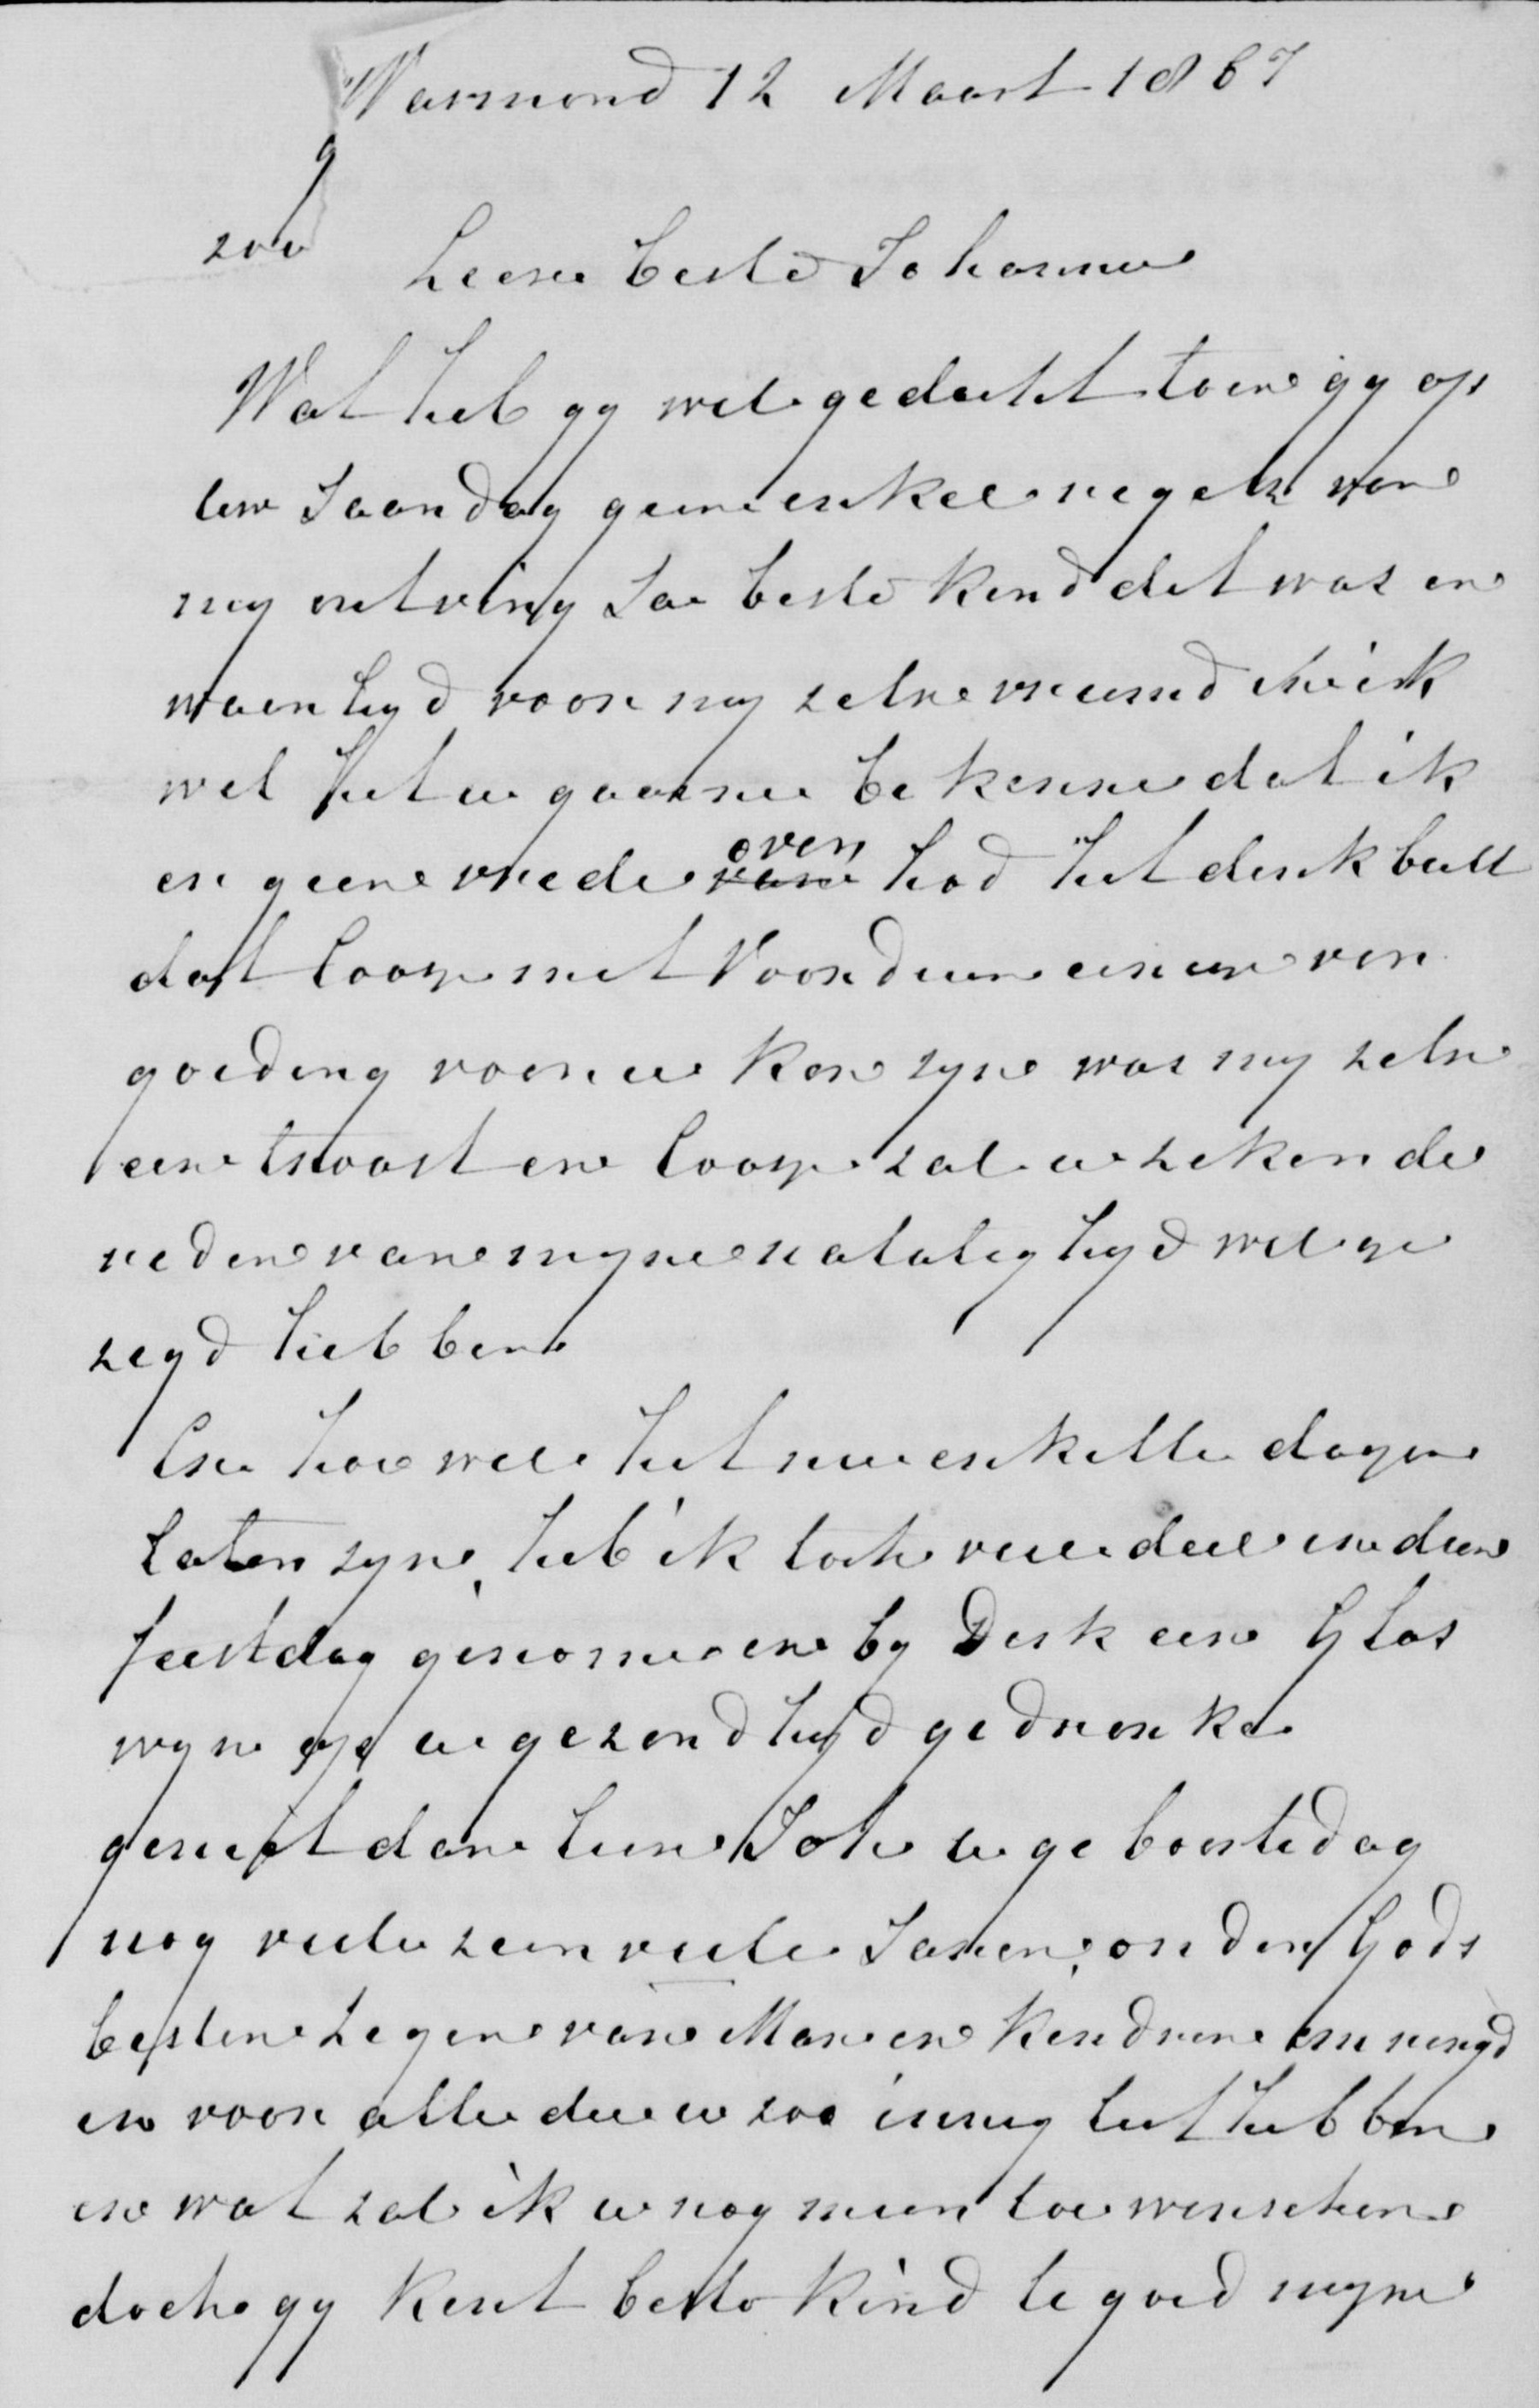 Warmond 12 Maart 1867
9
200
Lieve beste Johanna
Wat heb gy wel gedacht toen gy op
uw Jaardag geen enkel regels van
my ontving Ja beste kind dat was en
waarhyd voor my zelve vreemd en ik
wel het u gaarne bekenne dat ik
er geen vrede over had het denkbeeld
dat Coop met Voordeun een ver
goeding voor u kon zyn was my zelve
een troost en Coop zal u zeker de
reden van myne nalatighyd wel ge
zegd hebben
En hoe wel het nu enkelle dagen
later zyn, heb ik toch veel deel in deen
feestdag genomen en by Derk een Glas
wyn op u gezondhyd gedronke
geniet dan lieve Joh u geboortedag
nog veele zeer veele Jaren, onder Gods
besten Zegen van Man en Kindren omringd
en voor alle die u zoo innig lief hebben
en wat zal ik u nog meer toewenschen
doch gy kent beste kind te goed myne